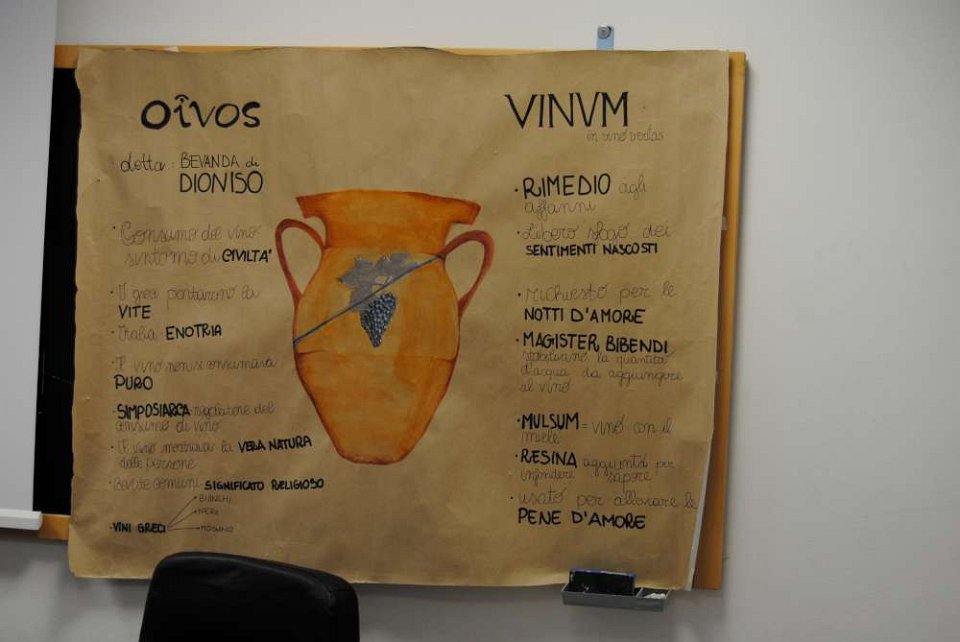 οἶνος
detta: BEVANDA di
DIONISO
· Consumo del vino
sintomo di CIVILTA'
· I greci portarono la
VITE
· Italia ENOTRIA
· Il vino non si consumava
PURO
· SIMPOSIARCA regolatore del
consumo di vino
· Il vino mostrava la VERA NATURA
delle persone
· Bevute comuni SIGNIFICATO RELIGIOSO
· VINI GRECI
BIANCHI
NERI
VINVM
in vino veritas
· RIMEDIO agli
affanni
· Libero sfogo dei
SENTIMENTI NASCOSTI
· richiesto per le
NOTTI D'AMORE
· MAGISTER BIBENDI
stabilivano la quantità
d'acqua da aggiungere
al vino
· MULSUM = vino con il
miele
· RESINA aggiunta per
infondere sapore
· usato per alleviare le
PENE D'AMORE